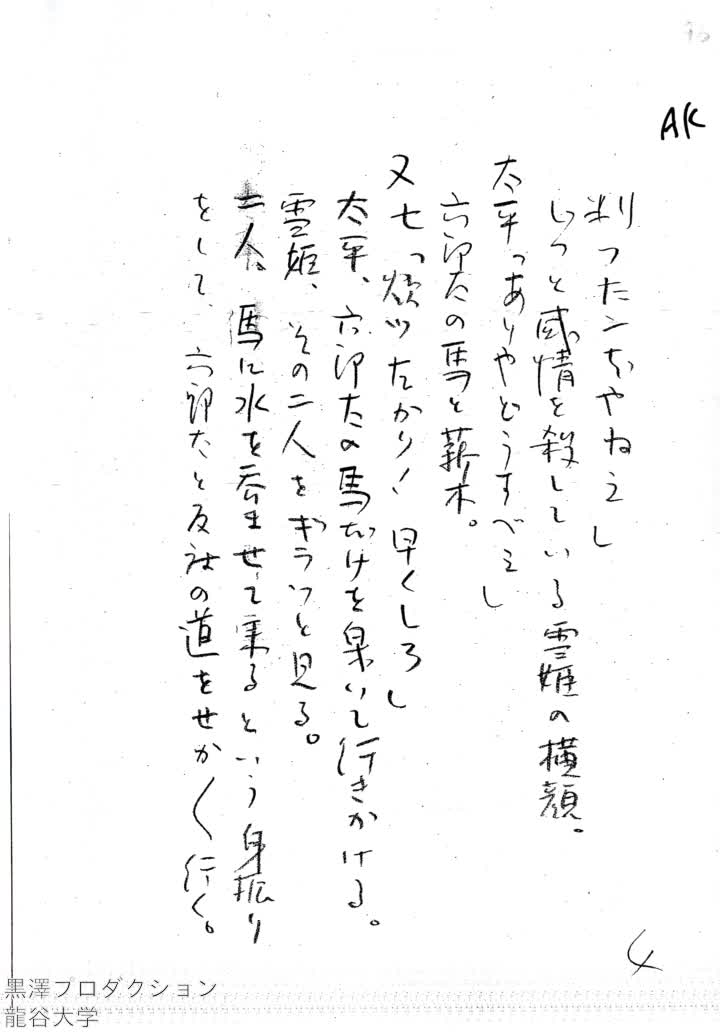 AK
判つたンぢやねえ」
じつと感情を殺している雪姫の横顔。
太平「ありやどうすべえ」
六郎太の馬と薪木。
又七「慾ツたかり! 早くしろ」
太平、六郎太の馬だけを曳いて行きかける。
雪姫、その二人をギラツと見る。
二人、馬に水を呑ませて来るという身振り
をして、六郎太と反対の道をせか〱行く。
4
黒澤プロダクション
龍谷大学